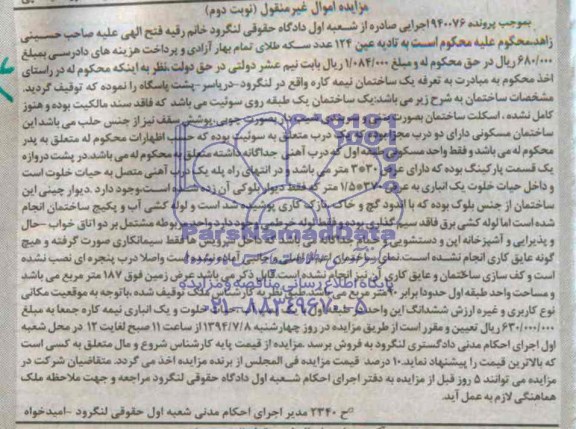 مزایده اموال غیرمنقول (نوبت دوم)
بموجب پرونده ۹۴۰۰۷۶ اجرایی صادره از شعبه اول دادگاه حقوقی لنگرود خانم رقیه فتح الهی علیه صاحب حسینی
زاهد،محکوم علیه محکوم است به تادیه عین ۱۲۴ عدد سکه طلای تمام بهار آزادی و پرداخت هزینه های دادرسی بمبلغ
۶۸۰/۰۰۰ ریال در حق محکوم له و مبلغ ۱/۰۸۴/۰۰۰ ریال بابت نیم عشر دولتی در حق دولت،نظر به اینکه محکوم له در راستای
اخذ محکوم به مبادرت به تعرفه یک ساختمان نیمه کاره واقع در لنگرود-دریاسر-پشت پاسگاه را نموده که توقیف گردید.
مشخصات ساختمان به شرح زیر می باشد:یک ساختمان یک طبقه روی سوئیت می باشد که فاقد سند مالکیت بوده و هنوز
کامل نشده ، اسکلت ساختمان بصورت بصورت چوبی،پوشش سقف نیز از جنس حلب می باشد.این
ساختمان مسکونی دارای دو درب مجزا یک درب متعلق به سوئیت بوده که حسب اظهارات محکوم له متعلق به پدر
محکوم له می باشد و فقط واحد مسکونی طبقه اول که درب آهنی جداگانه داشته متعلق به محکوم له می باشد.در پشت دروازه
یک قسمت پارکینگ بوده که دارای عرض ۳۰*۳ متر می باشد و در انتهای راه پله یک درب آهنی متصل به حیات خلوت است
و داخل حیات خلوت یک انباری به عرض ۱/۵*۳۷ متر که فقط دیوار بلوکی آن زده شده است،وجود دارد .دیوار چینی این
ساختمان از جنس بلوک بوده که با اندود گچ و خاک نازک کاری پوشیده شده است و لوله کشی آب و پکیج ساختمان انجام
شده است اما لوله کشی برق فاقد سیم گذاری بوده و فقط لوله خرطومی وجود دارد.واحد مربوطه مشتمل بر دو اتاق خواب -حال
و پذیرایی و آشپزخانه اپن و دستشویی و حمام جداگانه می باشد که داخل سرویس ها فقط سیمانکاری صورت گرفته و هیچ
گونه عایق کاری انجام نشده است.نمای ساختمان اعم از اصلی و جانبی آماده نبوده است واصلا درب پنجره ای نصب نشده
است و کف سازی ساختمان و عایق کاری آن نیز انجام نشده است.قابل ذکر می باشد عرض زمین فوق ۱۸۷ متر مربع می باشد
و مساحت واحد طبقه اول حدودا برابر ۹۰ متر مربع می باشد.طبق نظر به کارشناس ملک توقیف شده ،باتوجه به موقعیت مکانی
نوع کاربری و غیره ارزش ششدانگ این واحد در طبقه اول خلوت و یک انباری نیمه کاره جمعا به مبلغ
۶۳۰/۰۰۰/۰۰۰ ریال تعیین و مقرر است از طریق مزایده در روز چهارشنبه ۱۳۹۴/۷/۸ از ساعت ۱۱ صبح لغایت ۱۲ در محل شعبه
اول اجرای احکام مدنی دادگستری لنگرود به فروش برسد .مزایده از قیمت پایه کارشناس شروع و مال متعلق به کسی است
که بالاترین قیمت را پیشنهاد نماید.۱۰ درصد قیمت مزایده فی المجلس از برنده مزایده اخذ می گردد. متقاضیان شرکت در
مزایده می توانند ۵ روز قبل از مزایده به دفتر اجرای احکام شعبه اول دادگاه حقوقی لنگرود مراجعه و جهت ملاحظه ملک
هماهنگی لازم به عمل آید.
ح ۲۳۴۰ مدیر اجرای احکام مدنی شعبه اول حقوقی لنگرود -امیدخواه
ParsNamadData
پایگاه اطلاع رسانی مناقصه و مزایده
۰۲۱-۸۸۳۴۹۶۷۰-۵